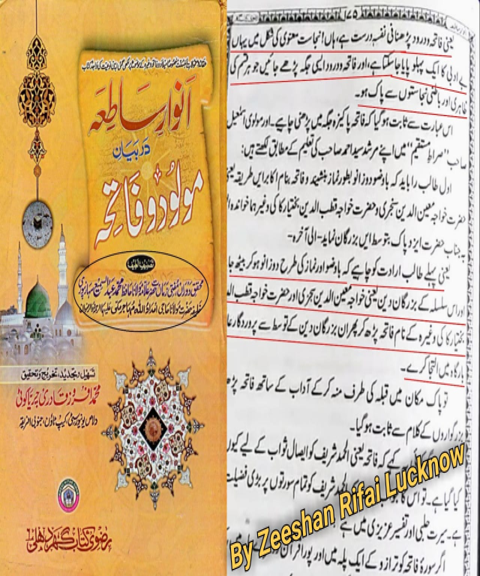 انوارِ ساطعہ
در بیان
مولود و فاتحہ
تسہیل وتجدید، تخریج وتحقیق
محمد افروز قادری چریاکوٹی
رضوی کتاب گھر دہلی
۱۷۵
یعنی فاتحہ ودرود پڑھنا فی نفسہٖ درست ہے، ہاں! نجاست معنوی کی شکل میں یہاں
بے ادبی کا ایک پہلو پایا جاسکتا ہے، اور فاتحہ ودرود ایسی جگہ پڑھے جائیں جو ہر قسم کی
ظاہری اور باطنی نجاستوں سے پاک ہو۔
اس عبارت سے ثابت ہوگیا کہ فاتحہ پاکیزہ جگہ میں پڑھنی چاہیے۔ اور مولوی اسمٰعیل
صاحب 'صراط مستقیم' میں اپنے مرشد سید احمد صاحب کی تعلیم کے مطابق لکھتے ہیں:
اول طالب را باید کہ باوضو دوزانو بطور نماز بنشیند و فاتحہ بنام اکابر ایں طریقہ یعنی
حضرت خواجہ معین الدین سنجری و حضرت خواجہ قطب الدین بختیار کاکی وغیرہما خواندہ
بہ جناب حضرت ایزد پاک بتوسط ایں بزرگان نماید۔ الیٰ آخرہ۔
یعنی پہلے طالب ارادت کو چاہیے کہ باوضو اور نماز کی طرح دوزانو ہو کر بیٹھ جائے
اور اس سلسلہ کے بزرگان دین یعنی خواجہ معین الدین سنجری اور حضرت خواجہ قطب الدین
بختیار کاکی وغیرہ کے نام فاتحہ پڑھ کر پھر ان بزرگان دین کے توسط سے پروردگار عالم
بارگاہ میں التجا کرے۔
تو پاک مکان میں قبلہ کی طرف منہ کرکے آداب کے ساتھ فاتحہ پڑھنا
بزرگواروں کے کلام سے ثابت ہوگیا۔
کہ فاتحہ یعنی الحمد شریف کو ایصال ثواب کے لیے کیوں
کیا گیا ہے۔ تو اس کا شریف کو تمام سورتوں پر بڑی فضیلت
ہے۔ سیرت حلبی اور تفسیر عزیزی میں ہے
اگر سورۂ فاتحہ کو ترازو کے ایک پلہ میں اور پورا قرآن
By Zeeshan Rifai Lucknow